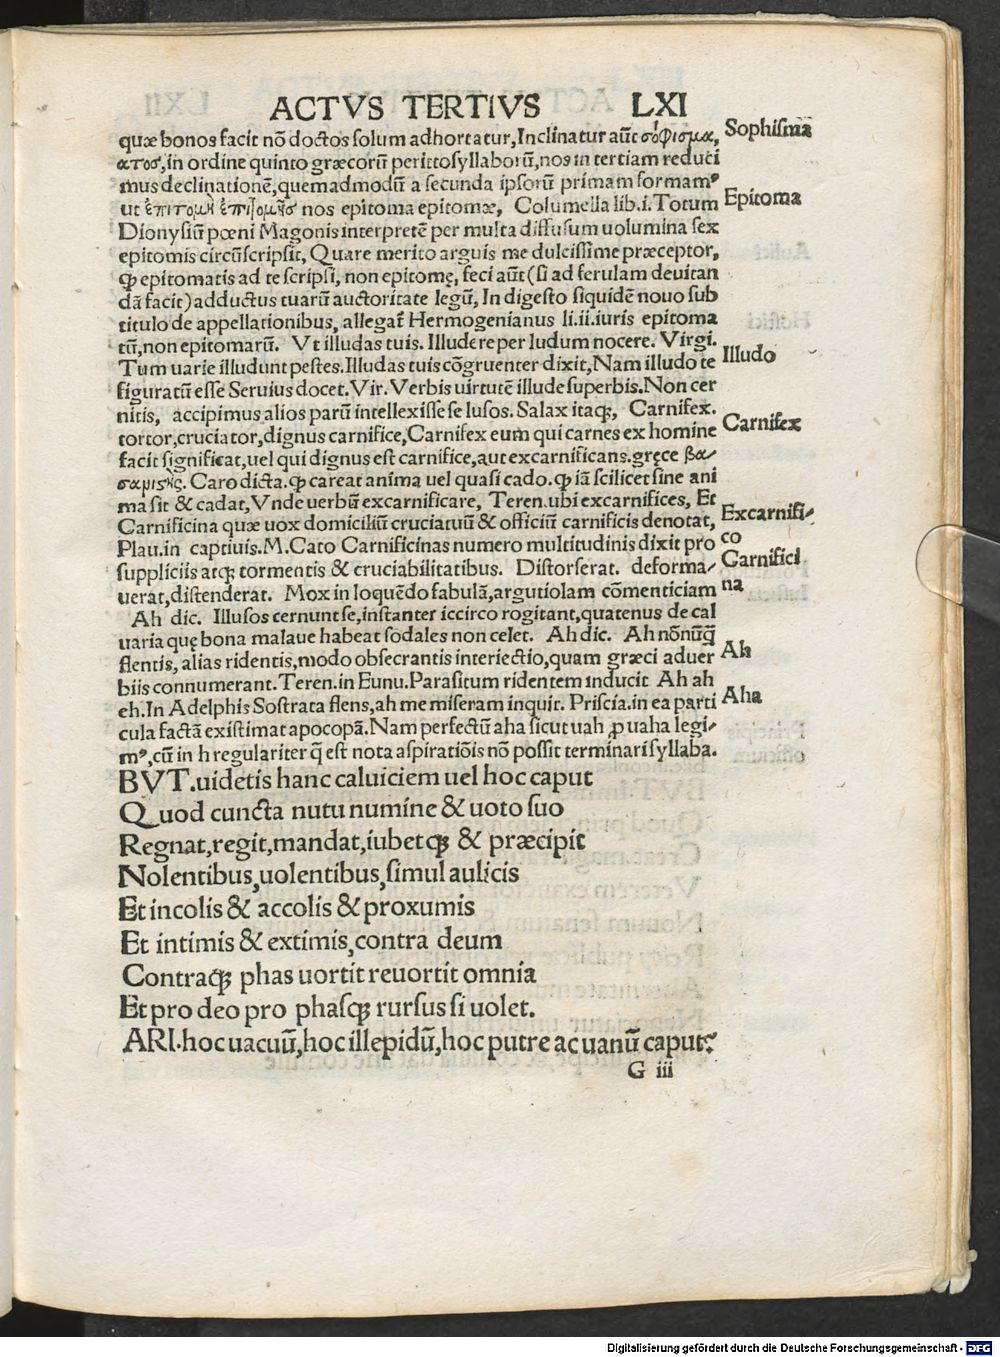 ACTVS TERTIVS LXI
quæ bonos facit nõ doctos solum adhortatur, Inclinatur aũt σόφισμα,
ατος, in ordine quinto græcorũ perittosyllaborũ, nos in tertiam reduci
mus declinationẽ, quemadmodũ a secunda ipsorũ primam formamꝰ
ut ἐπιτομὴ ἐπιτομῆσ nos epitoma epitomæ, Columella lib.i. Totum
Dionysiũ pœni Magonis interpretẽ per multa diffusum uolumina sex
epitomis circũscripsit, Quare merito arguis me dulcissime præceptor,
ꝙ epitomatis ad te scripsi, non epitomę, feci aũt (si ad ferulam deuitan
dã facit) adductus tuarũ auctoritate legũ, In digesto siquidẽ nouo sub
titulo de appellationibus, allegat̃ Hermogenianus li.ii. iuris epitoma
tũ, non epitomarũ. Vt illudas tuis. Illudere per ludum nocere. Virgi.
Tum uarie illudunt pestes. Illudas tuis cõgruenter dixit, Nam illudo te
figuratũ esse Seruius docet. Vir. Verbis uirtutẽ illude superbis. Non cer
nitis, accipimus alios parũ intellexisse se lusos. Salax itaqꝫ, Carnifex.
tortor, cruciator, dignus carnifice, Carnifex eum qui carnes ex homine
facit significat, uel qui dignus est carnifice, aut excarnificans. gręce βα⸗
σαριστὴς. Caro dicta. ꝙ careat anima uel quasi cado. ꝙ iã scilicet sine ani
ma sit & cadat, Vnde uerbũ excarnificare, Teren. ubi excarnifices, Et
Carnificina quæ uox domiciliũ cruciatuũ & officiũ carnificis denotat,
Plau. in captiuis. M. Cato Carnificinas numero multitudinis dixit pro
suppliciis atqꝫ tormentis & cruciabilitatibus. Distorserat. deforma⸗
uerat, distenderat. Mox in loquẽdo fabulã, argutiolam cõmenticiam
Ah dic. Illusos cernunt se, instanter iccirco rogitant, quatenus de cal
uaria quę bona malaue habeat sodales non celet. Ah dic. Ah nõnũq̃
flentis, alias ridentis, modo obsecrantis interiectio, quam græci aduer
biis connumerant. Teren. in Eunu. Parasitum ridentem inducit Ah ah
eh. In Adelphis Sostrata flens, ah me miseram inquit. Priscia. in ea parti
cula factã existimat apocopã. Nam perfectũ aha sicut uah ꝓ uaha legi⸗
mꝰ, cũ in h regulariter q̃ est nota aspiratiõis nõ possit terminari syllaba.
BVT. uidetis hanc caluiciem uel hoc caput
Quod cuncta nutu numine & uoto suo
Regnat, regit, mandat, iubetqꝫ & præcipit
Nolentibus, uolentibus, simul aulicis
Et incolis & accolis & proxumis
Et intimis & extimis, contra deum
Contraqꝫ phas uortit reuortit omnia
Et pro deo pro phasqꝫ rursus si uolet.
ARI. hoc uacuũ, hoc illepidũ, hoc putre ac uanũ caput?
G iii
Sophisma
Epitoma
Illudo
Carnifex
Excarnifi⸗
co
Carnifici
na
Ah
Aha
Digitalisierung gefördert durch die Deutsche Forschungsgemeinschaft - DFG